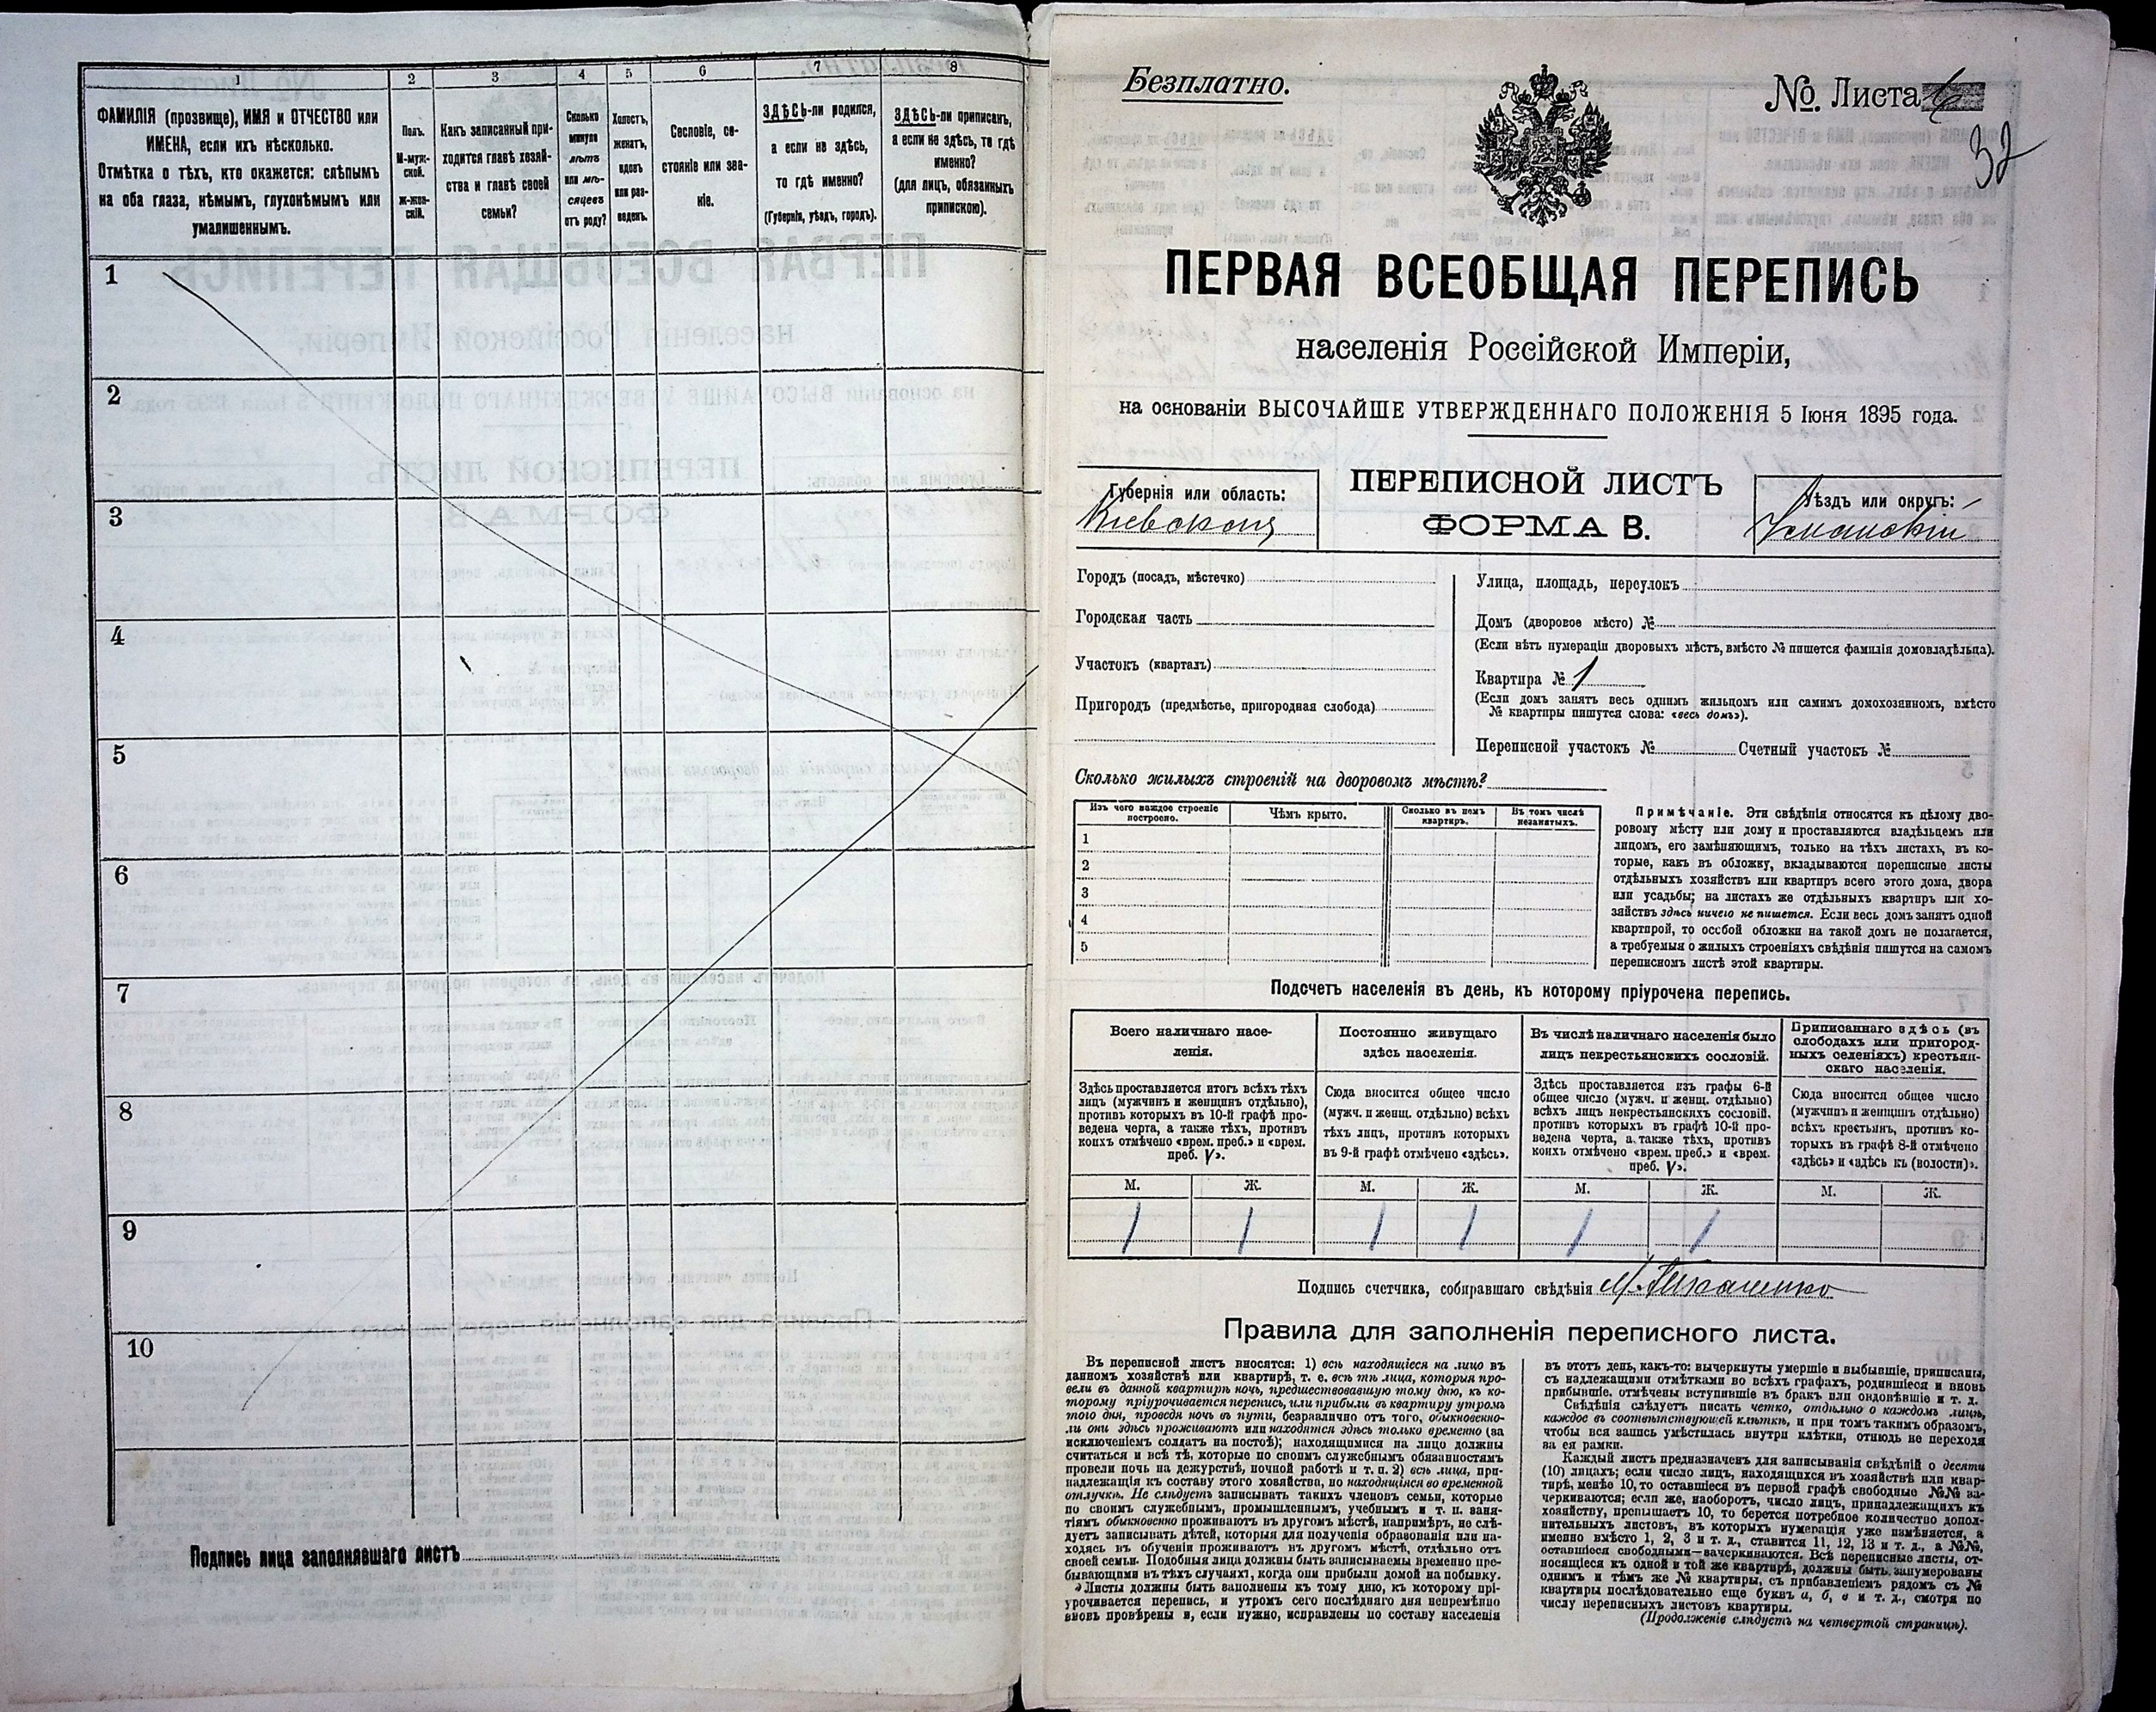 1
ФАМИЛІЯ (прозвище), ИМЯ и ОТЧЕСТВО или
ИМЕНА, если ихъ нѣсколько.
Отмѣтка о тѣхъ, кто окажется: слѣпымъ
на оба глаза, нѣмымъ, глухонѣмымъ или
умалишеннымъ.
2
Полъ.
М-муж-
ской.
Ж-жен-
скій.
3
Какъ записанный при-
ходится главѣ хозяй-
ства и главѣ своей
семьи?
4
Сколько
минуло
лѣтъ
или мѣ-
сяцевъ
отъ роду?
5
Холостъ,
женатъ,
вдовъ
или раз-
веденъ.
6
Сословіе, со-
стояніе или зва-
ніе.
7
ЗДѢСЬ-ли родился,
а если не здѣсь,
то гдѣ именно?
(Губернія, уѣздъ, городъ).
8
ЗДѢСЬ-ли приписанъ,
а если не здѣсь, то гдѣ
именно?
(для лицъ, обязанныхъ
припискою).
1
2
3
4
5
6
7
8
9
10
Подпись лица заполнявшаго листъ
Безплатно.
№. Листа
32
ПЕРВАЯ ВСЕОБЩАЯ ПЕРЕПИСЬ
населенія Россійской Имперіи,
на основаніи ВЫСОЧАЙШЕ УТВЕРЖДЕННАГО ПОЛОЖЕНІЯ 5 Іюня 1895 года.
Губернія или область:
Кіевская
ПЕРЕПИСНОЙ ЛИСТЪ
ФОРМА В.
Уѣздъ или округъ:
Уманскій
Городъ (посадъ, мѣстечко)
Городская часть
Участокъ (кварталъ)
Пригородъ (предмѣстье, пригородная слобода)
Улица, площадь, переулокъ
Домъ (дворовое мѣсто) №
(Если нѣтъ нумераціи дворовыхъ мѣстъ, вмѣсто № пишется фамилія домовладѣльца).
Квартира № 1
(Если домъ занятъ весь однимъ жильцомъ или самимъ домохозяиномъ, вмѣсто
№ квартиры пишутся слова: «весь домъ»).
Переписной участокъ № Счетный участокъ №
Сколько жилыхъ строеній на дворовомъ мѣстѣ?
Изъ чего каждое строеніе
построено.
Чѣмъ крыто.
Сколько въ немъ
квартиръ.
Въ томъ числѣ
незанятыхъ.
1
2
3
4
5
Примѣчаніе. Эти свѣдѣнія относятся къ цѣлому дво-
ровому мѣсту или дому и проставляются владѣльцемъ или
лицомъ, его замѣняющимъ, только на тѣхъ листахъ, въ ко-
торые, какъ въ обложку, вкладываются переписные листы
отдѣльныхъ хозяйствъ или квартиръ всего этого дома, двора
или усадьбы; на листахъ же отдѣльныхъ квартиръ или хо-
зяйствъ здѣсь ничего не пишется. Если весь домъ занятъ одной
квартирой, то особой обложки на такой домъ не полагается,
а требуемыя о жилыхъ строеніяхъ свѣдѣнія пишутся на самомъ
переписномъ листѣ этой квартиры.
Подсчетъ населенія въ день, къ которому пріурочена перепись.
Всего наличнаго насе-
ленія.
Здѣсь проставляется итогъ всѣхъ тѣхъ
лицъ (мужчинъ и женщинъ отдѣльно),
противъ которыхъ въ 10-й графѣ про-
ведена черта, а также тѣхъ, противъ
коихъ отмѣчено «врем. преб.» и «врем.
преб. V».
Постоянно живущаго
здѣсь населенія.
Сюда вносится общее число
(мужч. и женщ. отдѣльно) всѣхъ
тѣхъ лицъ, противъ которыхъ
въ 9-й графѣ отмѣчено «здѣсь».
Въ числѣ наличнаго населенія было
лицъ некрестьянскихъ сословій.
Здѣсь проставляется изъ графы 6-й
общее число (мужч. и женщ. отдѣльно)
всѣхъ лицъ некрестьянскихъ сословій,
противъ которыхъ въ графѣ 10-й про-
ведена черта, а также тѣхъ, противъ
коихъ отмѣчено «врем. преб.» и «врем.
преб. V».
Приписаннаго здѣсь (въ
слободахъ или пригород-
ныхъ селеніяхъ) крестьян-
скаго населенія.
Сюда вносится общее число
(мужчинъ и женщинъ отдѣльно)
всѣхъ крестьянъ, противъ ко-
торыхъ въ графѣ 8-й отмѣчено
«здѣсь» и «здѣсь къ (волости)».
М. Ж. М. Ж. М. Ж. М. Ж.
1 1 1 1 1 1
Подпись счетчика, собиравшаго свѣдѣнія М. Ткаченко
Правила для заполненія переписного листа.
Въ переписной листъ вносятся: 1) всѣ находящіеся на лицо въ
данномъ хозяйствѣ или квартирѣ, т. е. всѣ тѣ лица, которыя про-
вели въ данной квартирѣ ночь, предшествовавшую тому дню, къ ко-
торому пріурочивается перепись, или прибыли въ квартиру утромъ
того дня, проведя ночь въ пути, безразлично отъ того, обыкновенно-
ли они здѣсь проживаютъ или находятся здѣсь только временно (за
исключеніемъ солдатъ на постоѣ); находящимися на лицо должны
считаться и всѣ тѣ, которые по своимъ служебнымъ обязанностямъ
провели ночь на дежурствѣ, ночной работѣ и т. п. 2) всѣ лица, при-
надлежащія къ составу этого хозяйства, но находящіяся во временной
отлучкѣ. Не слѣдуетъ записывать такихъ членовъ семьи, которые
по своимъ служебнымъ, промышленнымъ, учебнымъ и т. п. заня-
тіямъ обыкновенно проживаютъ въ другомъ мѣстѣ, напримѣръ, не слѣ-
дуетъ записывать дѣтей, которыя для полученія образованія или на-
ходясь въ обученіи проживаютъ въ другомъ мѣстѣ, отдѣльно отъ
своей семьи. Подобныя лица должны быть записываемы временно пре-
бывающими въ тѣхъ случаяхъ, когда они прибыли домой на побывку.
Листы должны быть заполнены къ тому дню, къ которому прі-
урочивается перепись, и утромъ сего послѣдняго дня непремѣнно
вновь провѣрены и, если нужно, исправлены по составу населенія
въ этотъ день, какъ-то: вычеркнуты умершіе и выбывшіе, приписаны,
съ надлежащими отмѣтками во всѣхъ графахъ, родившіеся и вновь
прибывшіе, отмѣчены вступившіе въ бракъ или овдовѣвшіе и т. д.
Свѣдѣнія слѣдуетъ писать четко, отдѣльно о каждомъ лицѣ,
каждое въ соотвѣтствующей клѣткѣ, и при томъ такимъ образомъ,
чтобы вся запись умѣстилась внутри клѣтки, отнюдь не переходя
за ея рамки.
Каждый листъ предназначенъ для записыванія свѣдѣній о десяти
(10) лицахъ; если число лицъ, находящихся въ хозяйствѣ или квар-
тирѣ, менѣе 10, то оставшіеся въ первой графѣ свободные №№ за-
черкиваются; если же, наоборотъ, число лицъ, принадлежащихъ къ
хозяйству, превышаетъ 10, то берется потребное количество допол-
нительныхъ листовъ, въ которыхъ нумерація уже измѣняется, а
именно вмѣсто 1, 2, 3 и т. д., ставится 11, 12, 13 и т. д., а №№,
оставшіеся свободными—зачеркиваются. Всѣ переписные листы, от-
носящіеся къ одной и той же квартирѣ, должны быть занумерованы
однимъ и тѣмъ же № квартиры, съ прибавленіемъ рядомъ съ №
квартиры послѣдовательно еще буквъ а, б, в и т. д., смотря по
числу переписныхъ листовъ квартиры.
(Продолженіе слѣдуетъ на четвертой страницѣ).